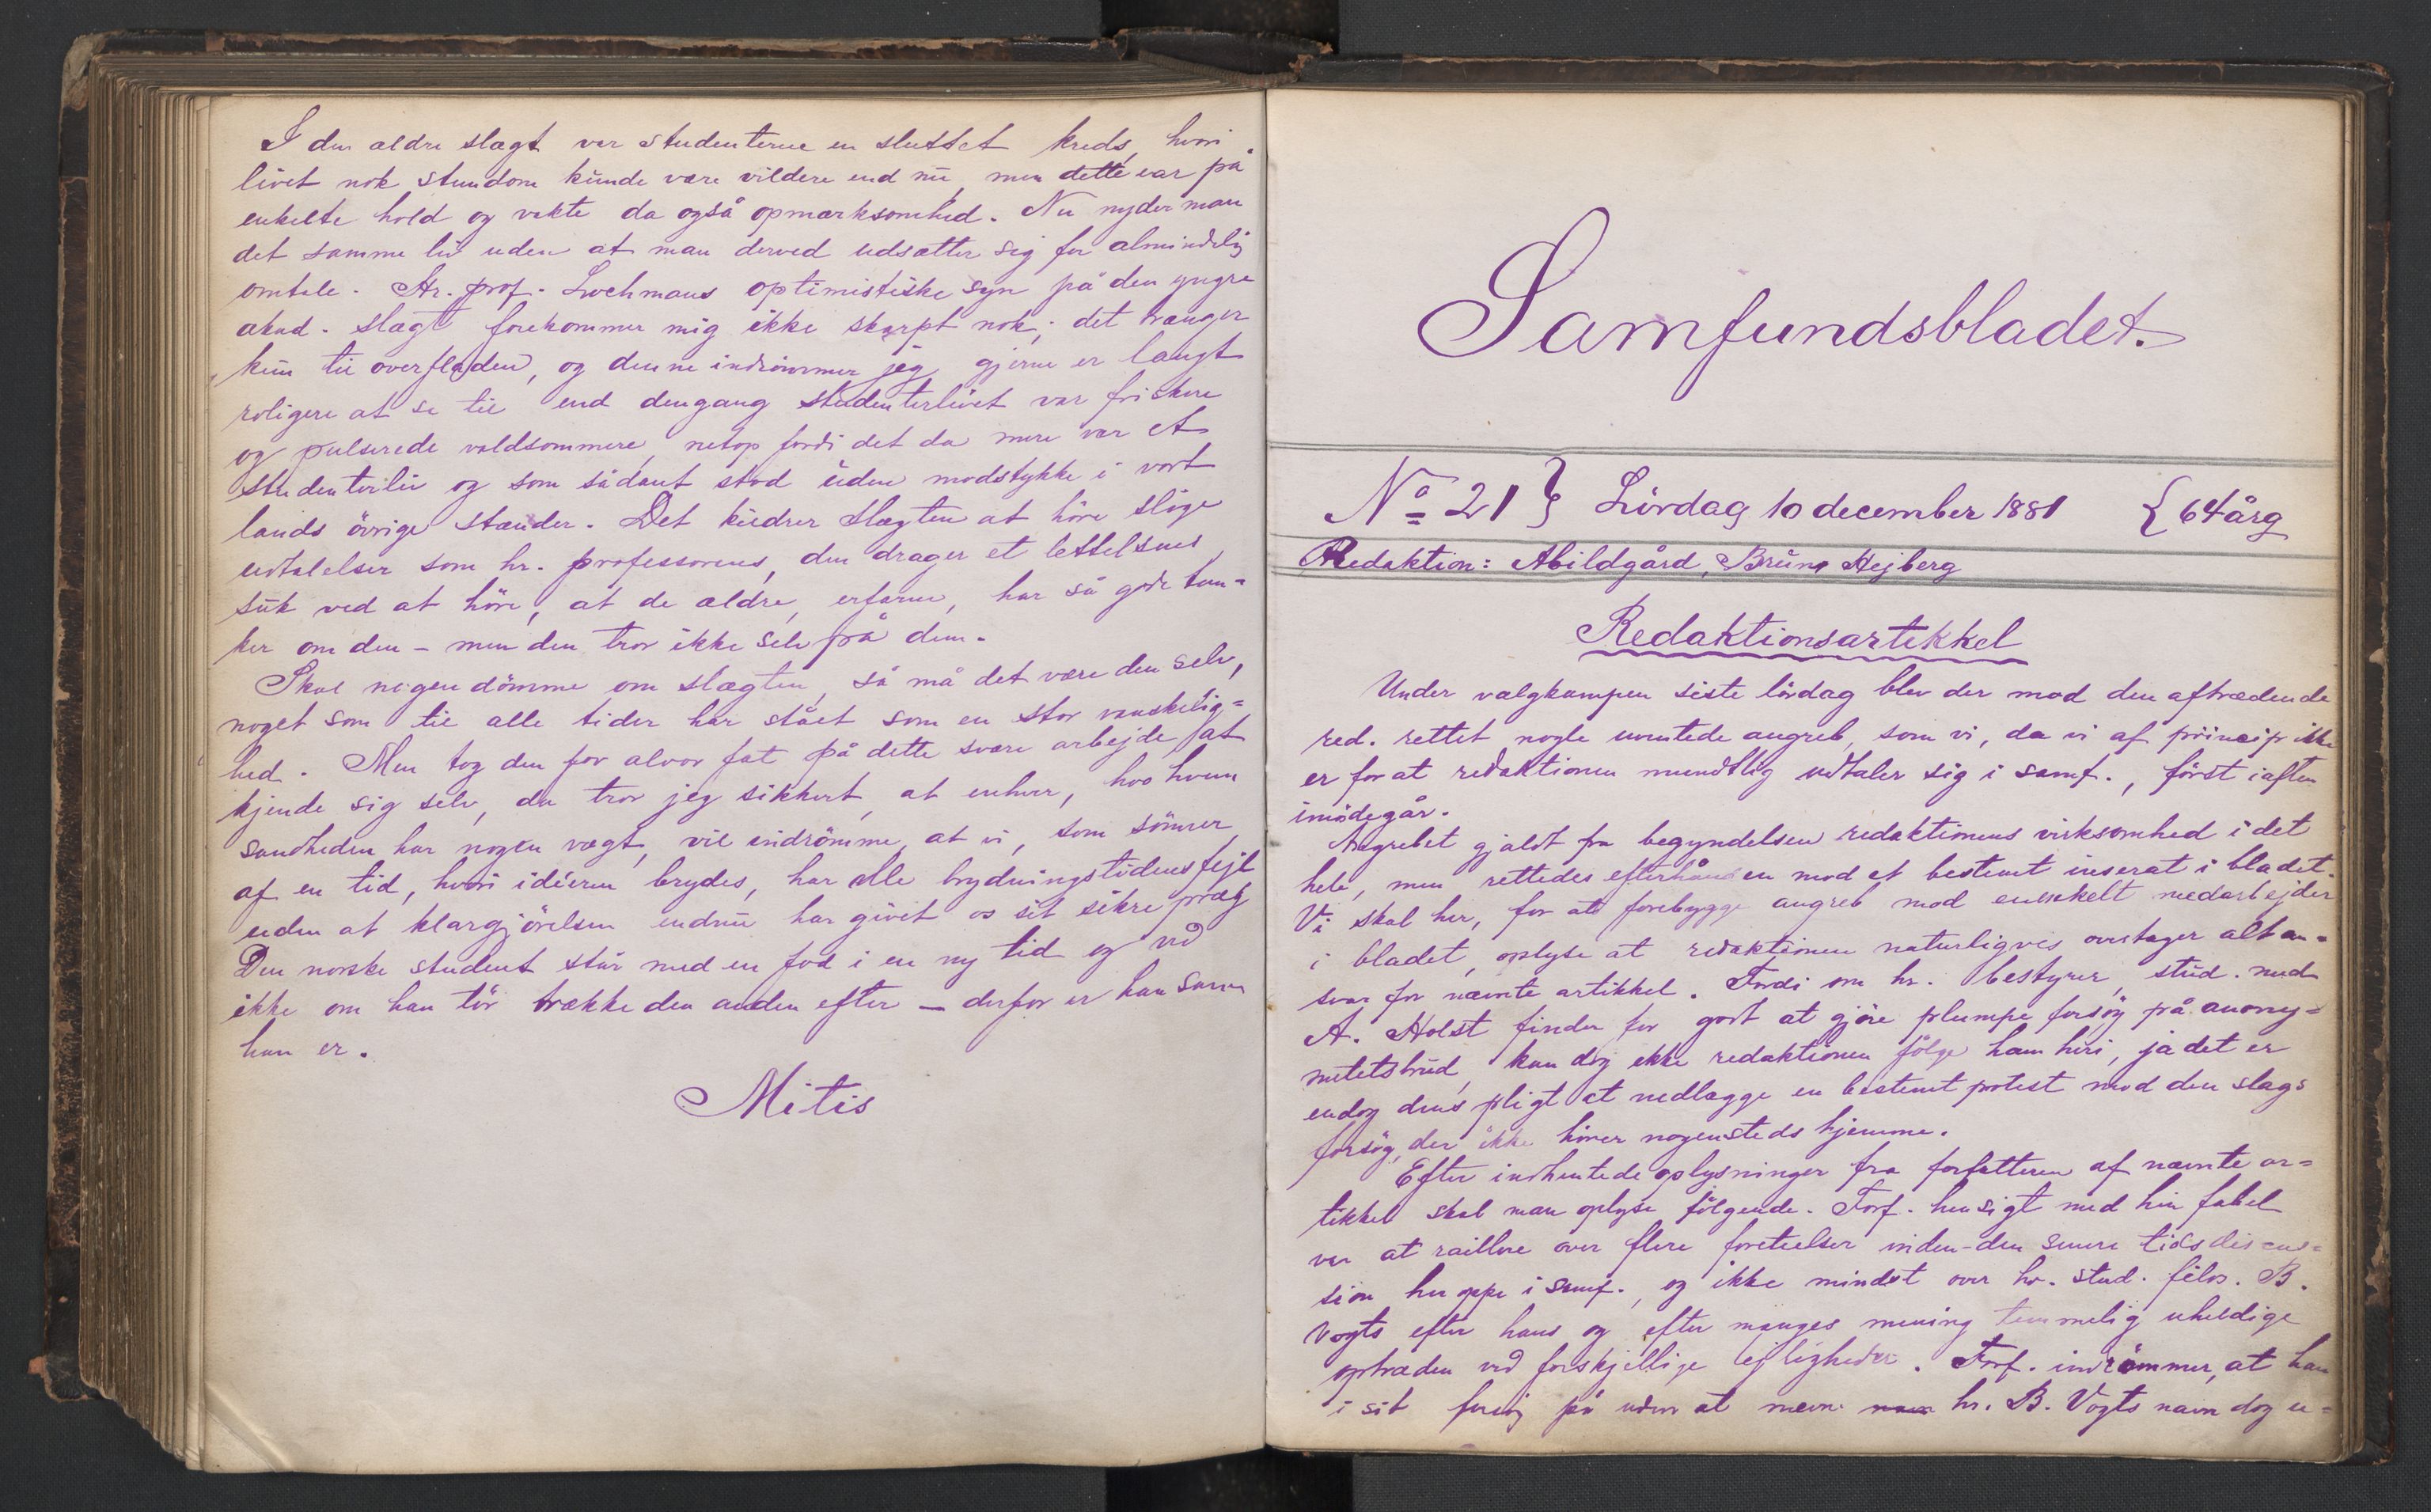 I den ældre slægt var studenterne en sluttet kreds, hvori
livet nok stundom kunde være vildere end nu, men dette var på
enkelte hold og vakte da også opmærksomhed. Nu nyder man
det samme liv uden at man derved udsætter sig for almindelig
omtale. Hr. prof. Lochmans optimistiske syn på den yngre
akad. slægt forekommer mig ikke skarpt nok; det trænger
kun til overfladen, og denne indrömmer jeg gjerne er langt
roligere at se til end dengang studenterlivet var friskere
og pulserede voldsommere, netop fordi det da mere var et
studenterliv og som sådant stod uden modstykke i vort
lands övrige stænder. Det kildrer slægten at höre slige
udtalelser som hr. professorens, den drager et lettelsens
suk ved at höre, at de ældre, erfarne, har så gode tan=
ker om den – men den tror ikke selv på dem.
Skal nogen dömme om slægten, så må det være den selv,
noget som til alle tider har stået som en stor vanskelig=
hed. Men tog den for alvor fat på dette svære arbejde, at
kjende sig selv, da tror jeg sikkert, at enhver, hos hvem
sandheden har nogen vægt, vil indrömme, at vi, som sönner
af en tid, hvori idéerne brydes, har alle brydningstidens fejl
uden at klargjörelsen endnu har givet os sit sikre præg
Den norske student står med en fod i en ny tid og ved
ikke om han tör trække den anden efter – derfor er han som
han er.
Mitis
Samfundsbladet.
No 21} Lördag 10 december 1881 {64 årg
Redaktion: Abildgård, Bruun, Hejberg
Redaktionsartikkel
Under valgkampen siste lördag blev der mod den aftrædende
red. rettet nogle uventede angreb, som vi, da vi af princip ikke
er for at redaktionen mundtlig udtaler sig i samf., först iaften
imödegår.
Angrebet gjaldt fra begyndelsen redaktionens virksomhed i det
hele, men rettedes efterhånden mod et bestemt inserat i bladet.
Vi skal her, for at forebygge angreb mod enkelt medarbejder
i bladet, oplyse at redaktionen naturligvis overtager alt an=
svar for nævnte artikkel. Fordi om hr. bestyrer, stud. med
A. Holst finder for godt at gjöre plumpe forsög på anony=
mitetsbrud, kan dog ikke redaktionen fölge ham heri, ja det er
endog dens pligt at nedlægge en bestemt protest mod den slags
forsög, der ikke hörer nogensteds hjemme.
Efter indhentede oplysninger fra forfatteren af nævnte ar=
tikkel skal man oplyse fölgende. Forf. hensigt med hin fabel
var at raillere over flere foreteelser inden den senere tids discus=
sion her oppe i samf., og ikke mindst over hr. stud. filos. B.
Vogts efter hans og efter manges mening temmelig uheldige
optræden ved forskjellige lejligheder. Forf. indrömmer, at han
i sit forsög på uden at nævne hr. B. Vogts navn dog u=